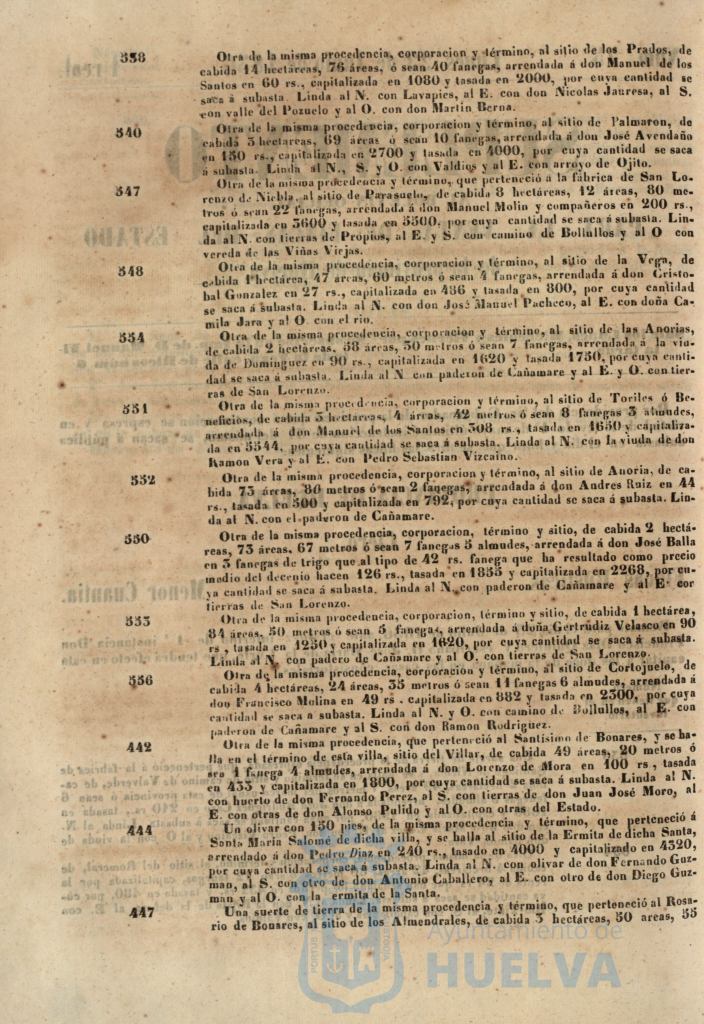 538 Otra de la misma procedencia, corporacion y término, al sitio de los Prados, de
cabida 14 hectáreas, 76 áreas, ó sean 40 fanegas, arrendada á don Manuel de los
Santos en 60 rs., capitalizada en 1080 y tasada en 2000, por cuya cantidad se
saca á subasta. Linda al N. con Lavapies, al E. con don Nicolas Jauresa, al S.
con valle del Pozuelo y al O. con don Martin Berna.
540 Otra de la misma procedencia, corporacion y término, al sitio de Palmaron, de
cabida 3 hectáreas, 69 áreas ó sean 10 fanegas, arrendada á don José Avendaño
en 150 rs., capitalizada en 2700 y tasada en 4000, por cuya cantidad se saca
á subasta. Linda al N., S. y O. con Valdios y al E. con arroyo de Ojito.
547 Otra de la misma procedencia y término, que perteneció á la fábrica de San Lo-
renzo de Niebla, al sitio de Parasuelo, de cabida 8 hectáreas, 12 áreas, 80 me-
tros ó sean 22 fanegas, arrendada á don Manuel Molin y compañeros en 200 rs.,
capitalizada en 3600 y tasada en 5500, por cuya cantidad se saca á subasta. Lin-
da al N. con tierras de Propios, al E. y S. con camino de Bollullos y al O con
vereda de las Viñas Viejas.
548 Otra de la misma procedencia, corporacion y término, al sitio de la Vega, de
cabida 1 hectárea, 47 áreas, 60 metros ó sean 4 fanegas, arrendada á don Cristo-
bal Gonzalez en 27 rs., capitalizada en 486 y tasada en 800, por cuya cantidad
se saca á subasta. Linda al N. con don José Manuel Pacheco, al E. con doña Ca-
mila Jara y al O. con el rio.
554 Otra de la misma procedencia, corporacion y término, al sitio de las Anorias,
de cabida 2 hectáreas, 58 áreas, 30 metros ó sean 7 fanegas, arrendada á la viu-
da de Dominguez en 90 rs., capitalizada en 1620 y tasada 1750, por cuya canti-
dad se saca á subasta. Linda al N con paderon de Cañamare y al E. y O. con tier-
ras de San Lorenzo.
551 Otra de la misma procedencia, corporacion y término, al sitio de Toriles ó Be-
neficios, de cabida 3 hectáreas, 4 áreas, 42 metros ó sean 8 fanegas 3 almudes,
arrendada á don Manuel de los Santos en 308 rs., tasada en 1650 y capitaliza-
da en 5544, por cuya cantidad se saca á subasta. Linda al N. con la viuda de don
Ramon Vera y al E. con Pedro Sebastian Vizcaino.
552 Otra de la misma procedencia, corporacion y término, al sitio de Anoria, de ca-
bida 73 áreas, 80 metros ó sean 2 fanegas, arrendada á don Andres Ruiz en 44
rs., tasada en 500 y capitalizada en 792, por cuya cantidad se saca á subasta. Lin-
da al N. con el paderon de Cañamare.
550 Otra de la misma procedencia, corporacion, término y sitio, de cabida 2 hectá-
reas, 73 áreas, 67 metros ó sean 7 fanegas 5 almudes, arrendada á don José Balla
en 3 fanegas de trigo que al tipo de 42 rs. fanega que ha resultado como precio
medio del decenio hacen 126 rs., tasada en 1855 y capitalizada en 2268, por cu-
ya cantidad se saca á subasta. Linda al N. con paderon de Cañamare y al E cor
tierras de San Lorenzo.
553 Otra de la misma procedencia, corporacion, término y sitio, de cabida 1 hectárea,
84 áreas, 50 metros ó sean 5 fanegas, arrendada á doña Gertrúdiz Velasco en 90
rs, tasada en 1250 y capitalizada en 1620, por cuya cantidad se saca á subasta.
Linda al N. con padero de Cañamare y al O. con tierras de San Lorenzo.
556 Otra de la misma procedencia, corporacion y término, al sitio de Cortojuelo, de
cabida 4 hectáreas, 24 áreas, 35 metros ó sean 11 fanegas 6 almudes, arrendada á
don Francisco Molina en 49 rs. capitalizada en 882 y tasada en 2300, por cuya
cantidad se saca á subasta. Linda al N. y O. con camino de Bollullos, al E. con
paderon de Cañamare y al S. con don Ramon Rodriguez.
442 Otra de la misma procedencia, que perteneció al Santísimo de Bonares, y se ha-
lla en el término de esta villa, sitio del Villar, de cabida 49 áreas, 20 metros ó
sea 1 fanega 4 almudes, arrendada á don Lorenzo de Mora en 100 rs, tasada
en 433 y capitalizada en 1800, por cuya cantidad se saca á subasta. Linda al N.
con huerto de don Fernando Perez, al S. con tierras de don Juan José Moro, al
E. con otras de don Alonso Pulido y al O. con otras del Estado.
444 Un olivar con 150 pies, de la misma procedencia y término, que perteneció á
Santa María Salomé de dicha villa, y se halla al sitio de la Ermita de dicha Santa,
arrendado á don Pedro Diaz en 240 rs., tasado en 4000 y capitalizado en 4320,
por cuya cantidad se saca á subasta. Linda al N. con olivar de don Fernando Guz-
man, al S. con otro de don Antonio Caballero, al E. con otro de don Diego Guz-
man y al O. con la ermita de la Santa.
447 Una suerte de tierra de la misma procedencia y término, que perteneció al Rosa-
rio de Bonares, al sitio de los Almendrales, de cabida 3 hectáreas, 50 areas, 55
Ayuntamiento de
HUELVA